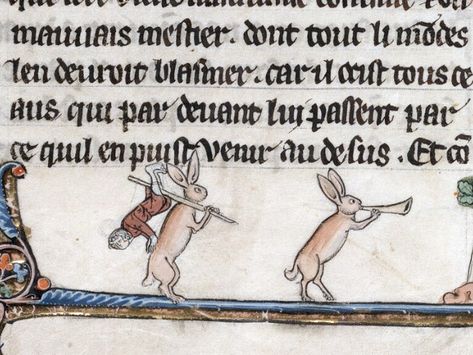 comme
mauuais mestier. dont tout li mōdes
len deuroit blasmer. car il ocist tous ce
aus qui par deuant lui passent par
ce quil en puist venir au desus. Et